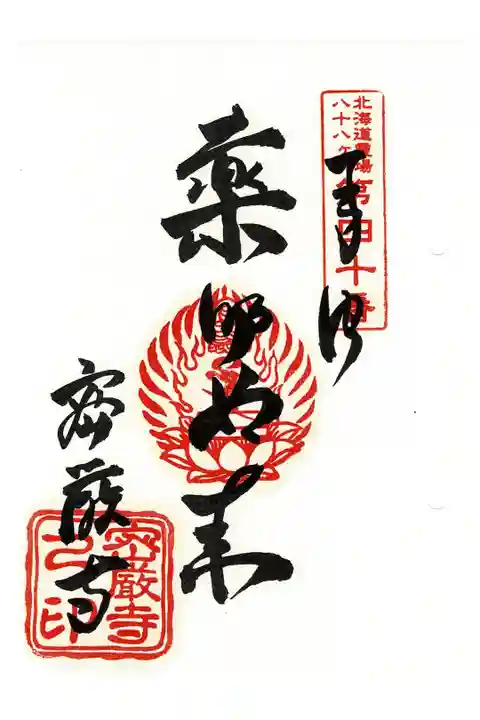 北海道霊場
八十八ヶ所
第四十番
奉拝
薬師如来
密厳寺
密厳寺之印